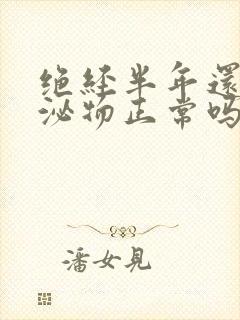 绝经半年還
泌物正常吗
潘女見